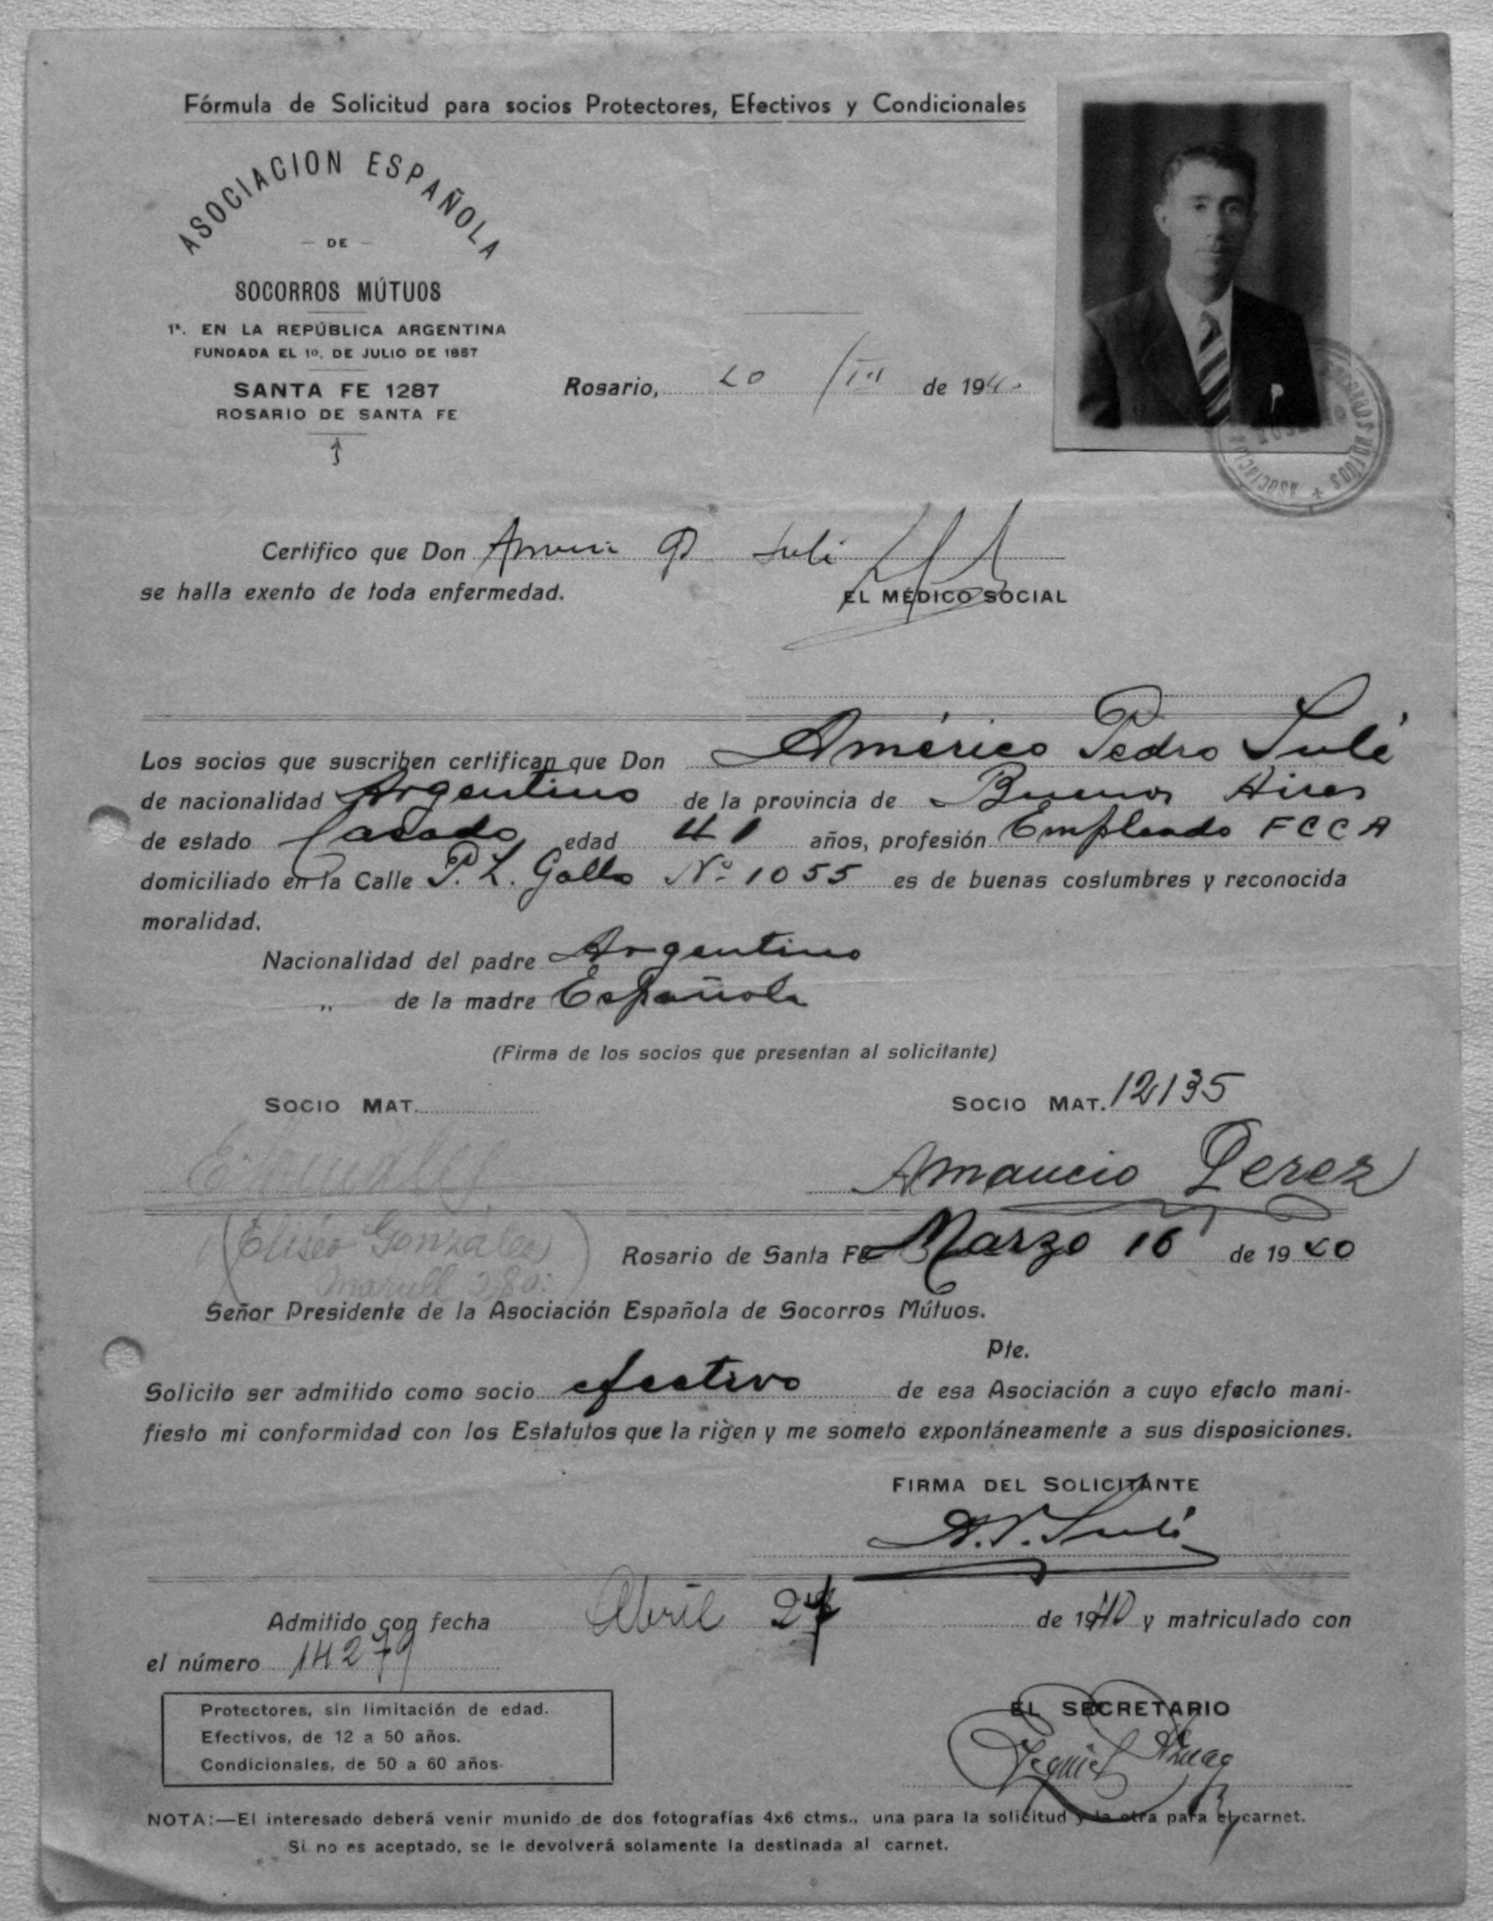 Fórmula de Solicitud para socios Protectores, Efectivos y Condicionales
ASOCIACION ESPAÑOLA
- DE -
SOCORROS MÚTUOS
1ª. EN LA REPÚBLICA ARGENTINA
FUNDADA EL 1º. DE JULIO DE 1857
SANTA FE 1287
ROSARIO DE SANTA FE
Rosario, 20 / III de 1940
Certifico que Don P Sulé
se halla exento de toda enfermedad.
EL MÉDICO SOCIAL
Los socios que suscriben certifican que Don Américo Pedro Sulé
de nacionalidad Argentino de la provincia de Buenos Aires
de estado Casado edad 41 años, profesión Empleado FCCA
domiciliado en la Calle P. L. Gallo Nº 1055 es de buenas costumbres y reconocida
moralidad.
Nacionalidad del padre Argentino
„ de la madre Española
(Firma de los socios que presentan al solicitante)
SOCIO MAT. SOCIO MAT. 12135
Amancio Perez
(Eliséo González
Marull 280.)
Rosario de Santa Fé Marzo 16 de 1940
Señor Presidente de la Asociación Española de Socorros Mútuos.
Pte.
Solicito ser admitido como socio efectivo de esa Asociación a cuyo efecto mani-
fiesto mi conformidad con los Estatutos que la rigen y me someto expontáneamente a sus disposiciones.
FIRMA DEL SOLICITANTE
A. P. Sulé
Admitido con fecha Abril 27 de 1940 y matriculado con
el número 14279
Protectores, sin limitación de edad.
Efectivos, de 12 a 50 años.
Condicionales, de 50 a 60 años.
EL SECRETARIO
NOTA:—El interesado deberá venir munido de dos fotografías 4x6 ctms., una para la solicitud y la otra para el carnet.
Si no es aceptado, se le devolverá solamente la destinada al carnet.